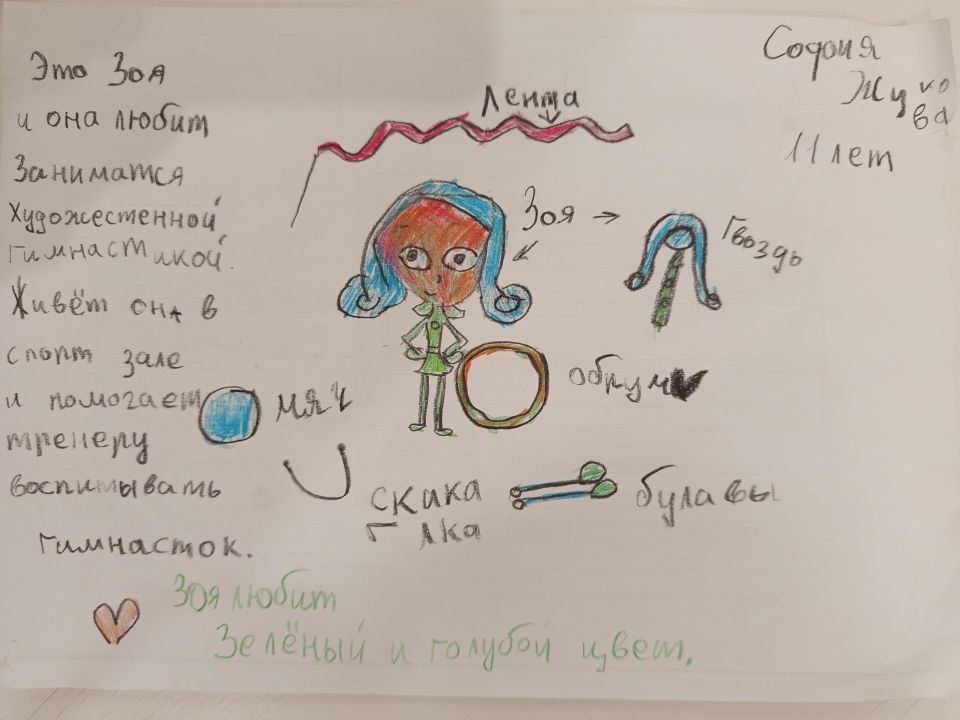 София
Жуко
ва
11 лет
Это Зоя
и она любит
Заниматся
Художественной
Гимнастикой.
Живёт она в
спорт зале
и помогает
тренеру
воспитывать
гимнасток.
Лента
Зоя →
Гвоздь
обруч
мяч
скака
лка
булавы
Зоя любит
Зелёный и голубой цвет.